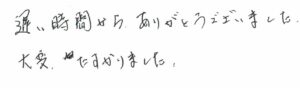 遅い時間から ありがとうございました
大変、たすかりました。